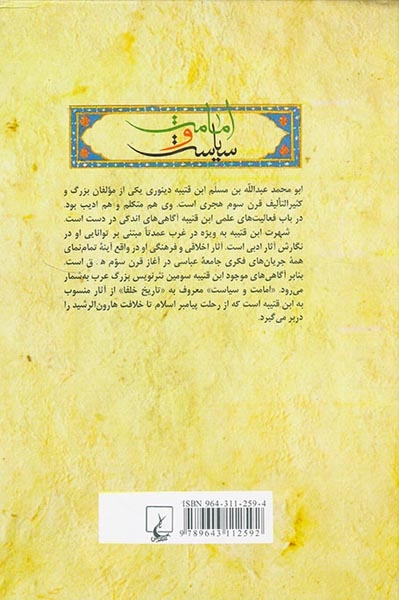 امامت و سیاست
ابو محمد عبدالله بن مسلم ابن قتیبه دینوری یکی از مؤلفان بزرگ و
کثیرالتألیف قرن سوم هجری است. وی هم متکلم و هم ادیب بود.
در باب فعالیت‌های علمی ابن قتیبه آگاهی‌های اندکی در دست است.
شهرت ابن قتیبه به ویژه در غرب عمدتاً مبتنی بر توانایی او در
نگارش آثار ادبی است. آثار اخلاقی و فرهنگی او در واقع آینهٔ تمام‌نمای
همهٔ جریان‌های فکری جامعهٔ عباسی در آغاز قرن سوّم ه‍ . ق است.
بنابر آگاهی‌های موجود ابن قتیبه سومین نثرنویس بزرگ عرب به‌شمار
می‌رود. «امامت و سیاست» معروف به «تاریخ خلفا» از آثار منسوب
به ابن قتیبه است که از رحلت پیامبر اسلام تا خلافت هارون‌الرشید را
دربر می‌گیرد.
ISBN 964-311-259-4
9 789643 112592